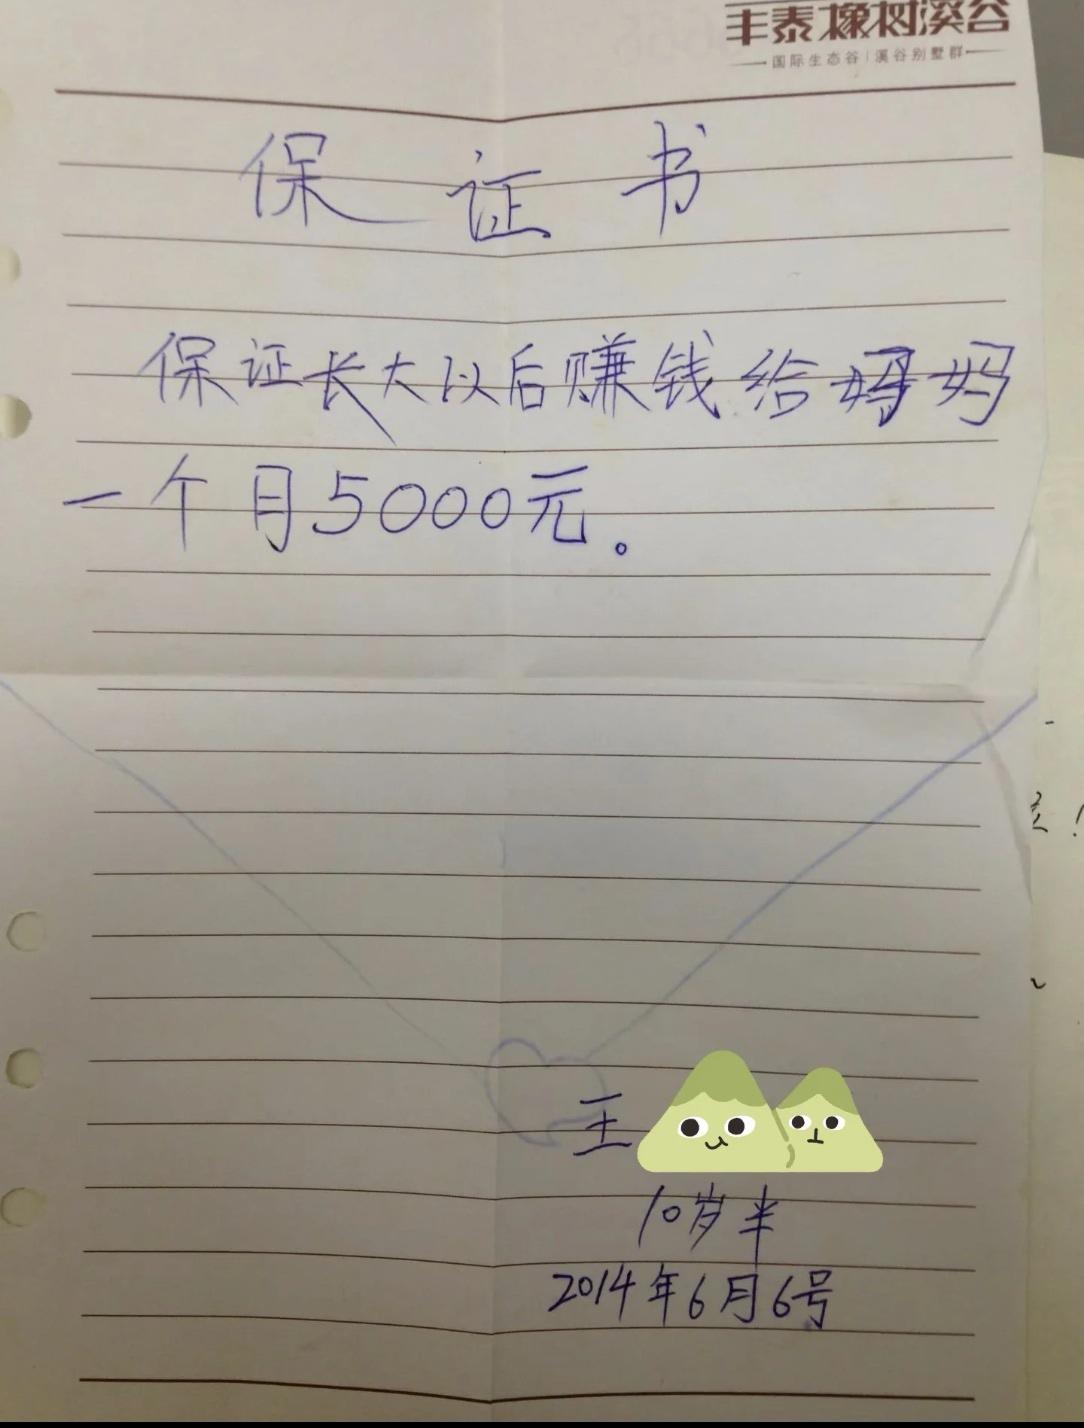 丰泰橡树溪谷
国际生态谷|溪谷别墅群
保证书
保证长大以后赚钱给妈妈
一个月5000元。
王
10岁半
2014年6月6号